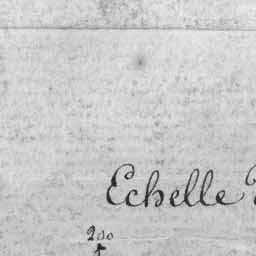 Echelle
200